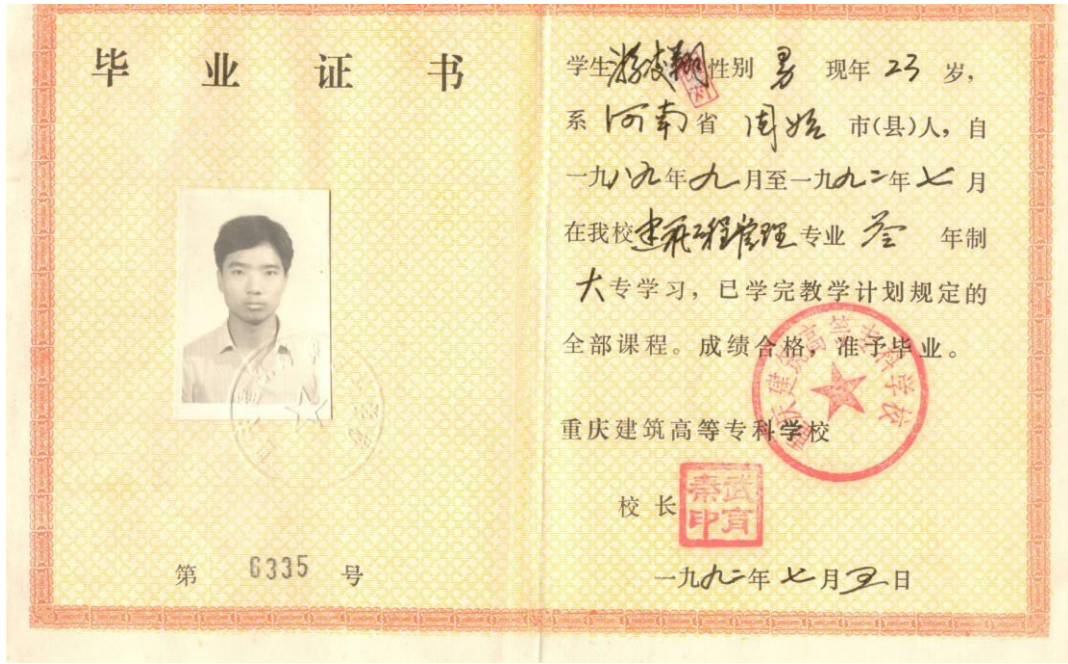 毕业证书
第 6335 号
学生游凌翔性别 男 现年 23 岁，
系 河南省 固始 市(县)人，自
一九八九年九月至一九九二年七月
在我校建筑工程管理专业 叁 年制
大专学习，已学完教学计划规定的
全部课程。成绩合格，准予毕业。
重庆建筑高等专科学校
重庆建筑高等专科学校
校长
一九九二年七月五日